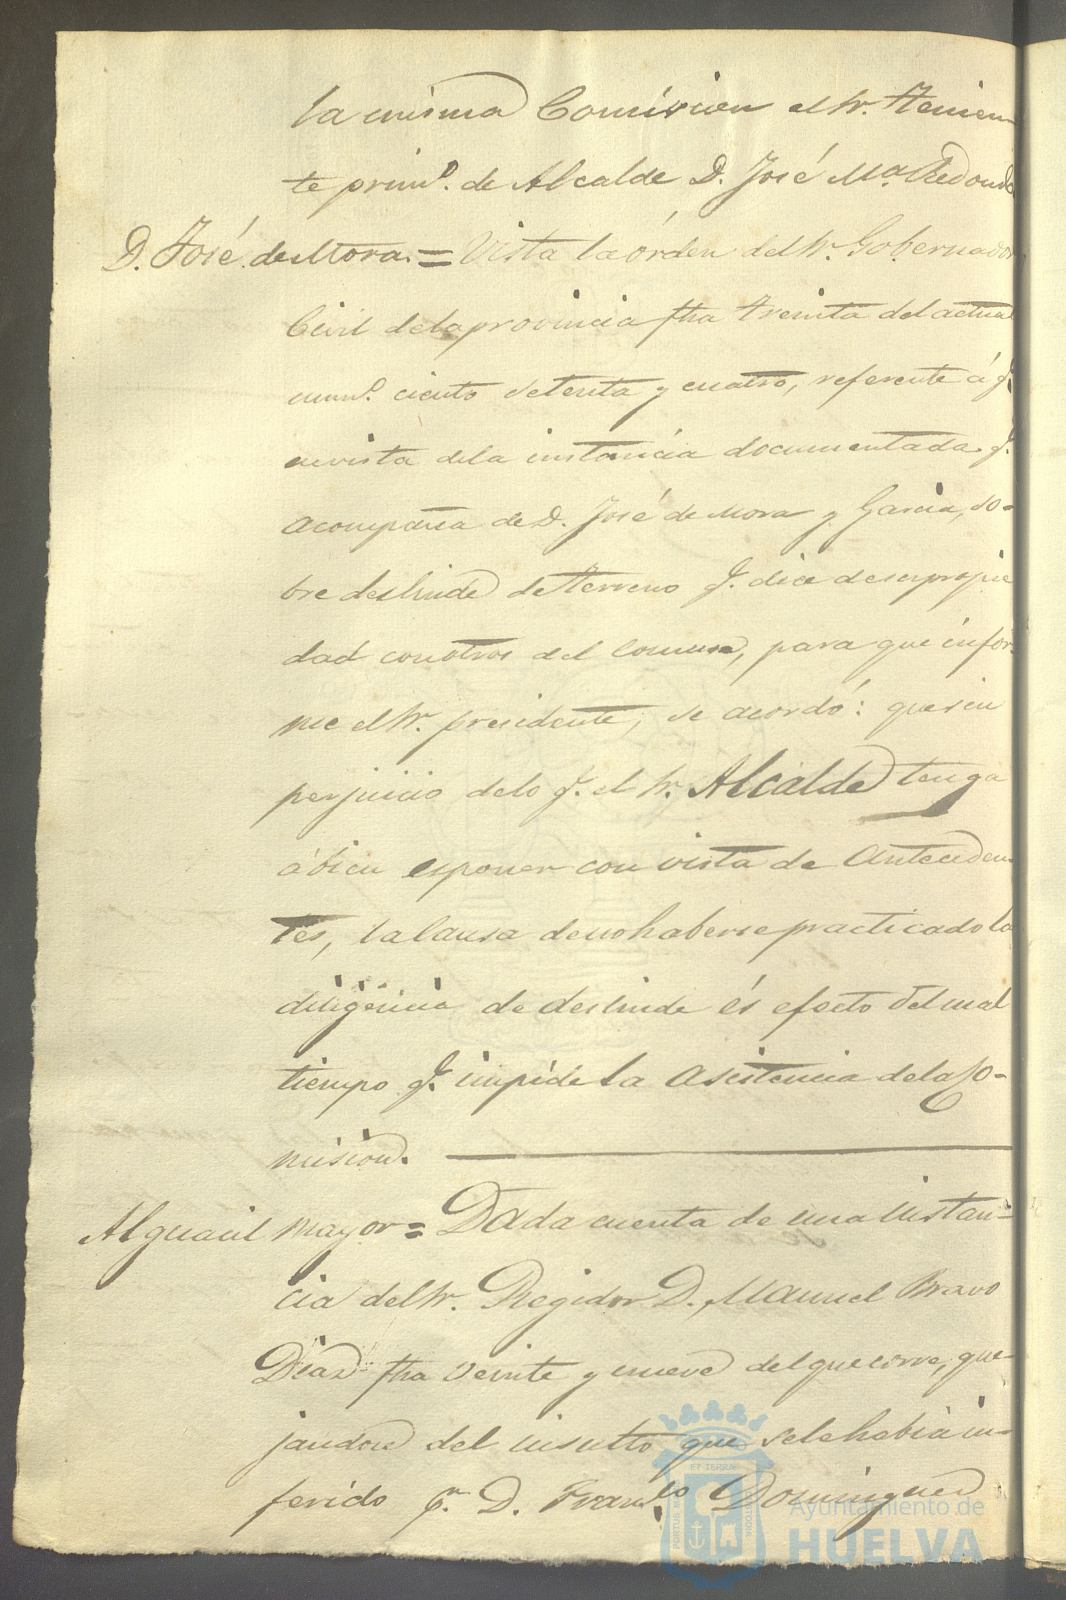 la misma Comision el Sr. Tenien-
te prim.º de Alcalde D. José M.ª Redondo
D. José de Mora. = Vista la órden del Sr. Gobernador
Civil dela provincia fha treinta del actual
num.º ciento setenta y cuatro, referente á q.e
en vista dela instancia documentada q.e
acompaña de D. José de Mora y Garcia, so-
bre deslinde de terreno q.e dice deser propie
dad con otros del comun, para que infor-
me el Sr. presidente; se acordó: que sin
perjuicio delo q.e el Sr. Alcalde tenga
á bien esponer con vista de anteceden-
tes, la causa de no haberse practicado la
diligencia de deslinde és efecto del mal
tiempo q.e impide la asistencia dela Co-
mision.
Alguacil mayor = Dada cuenta de una instan-
cia del Sr. Regidor D. Manuel Bravo
Diaz fha veinte y nueve del que corre, que-
jandose del insulto que sele habia in-
ferido p.r D. Fran.co Dominguez
ET TERRAE
PORTUS MARIS
CUSTODIA
Ayuntamiento de
HUELVA